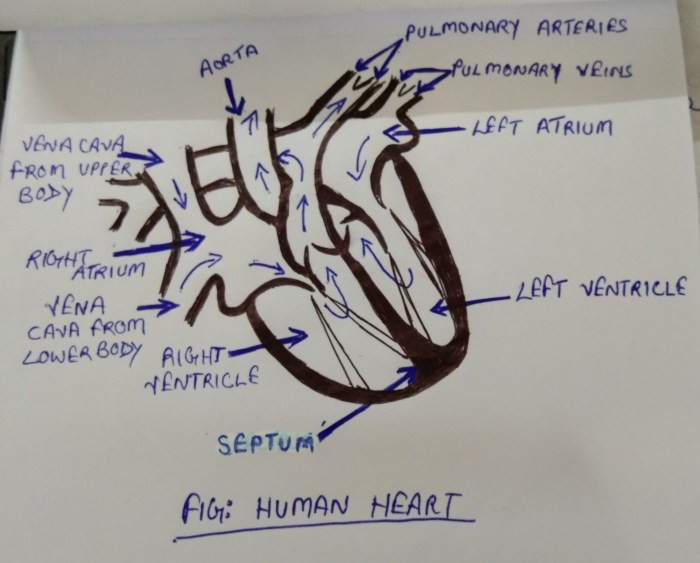 PULMONARY ARTERIES
AORTA
PULMONARY VEINS
LEFT ATRIUM
VENA CAVA
FROM UPPER
BODY
RIGHT
ATRIUM
VENA
CAVA FROM
LOWER BODY
LEFT VENTRICLE
RIGHT
VENTRICLE
SEPTUM
FIG: HUMAN HEART